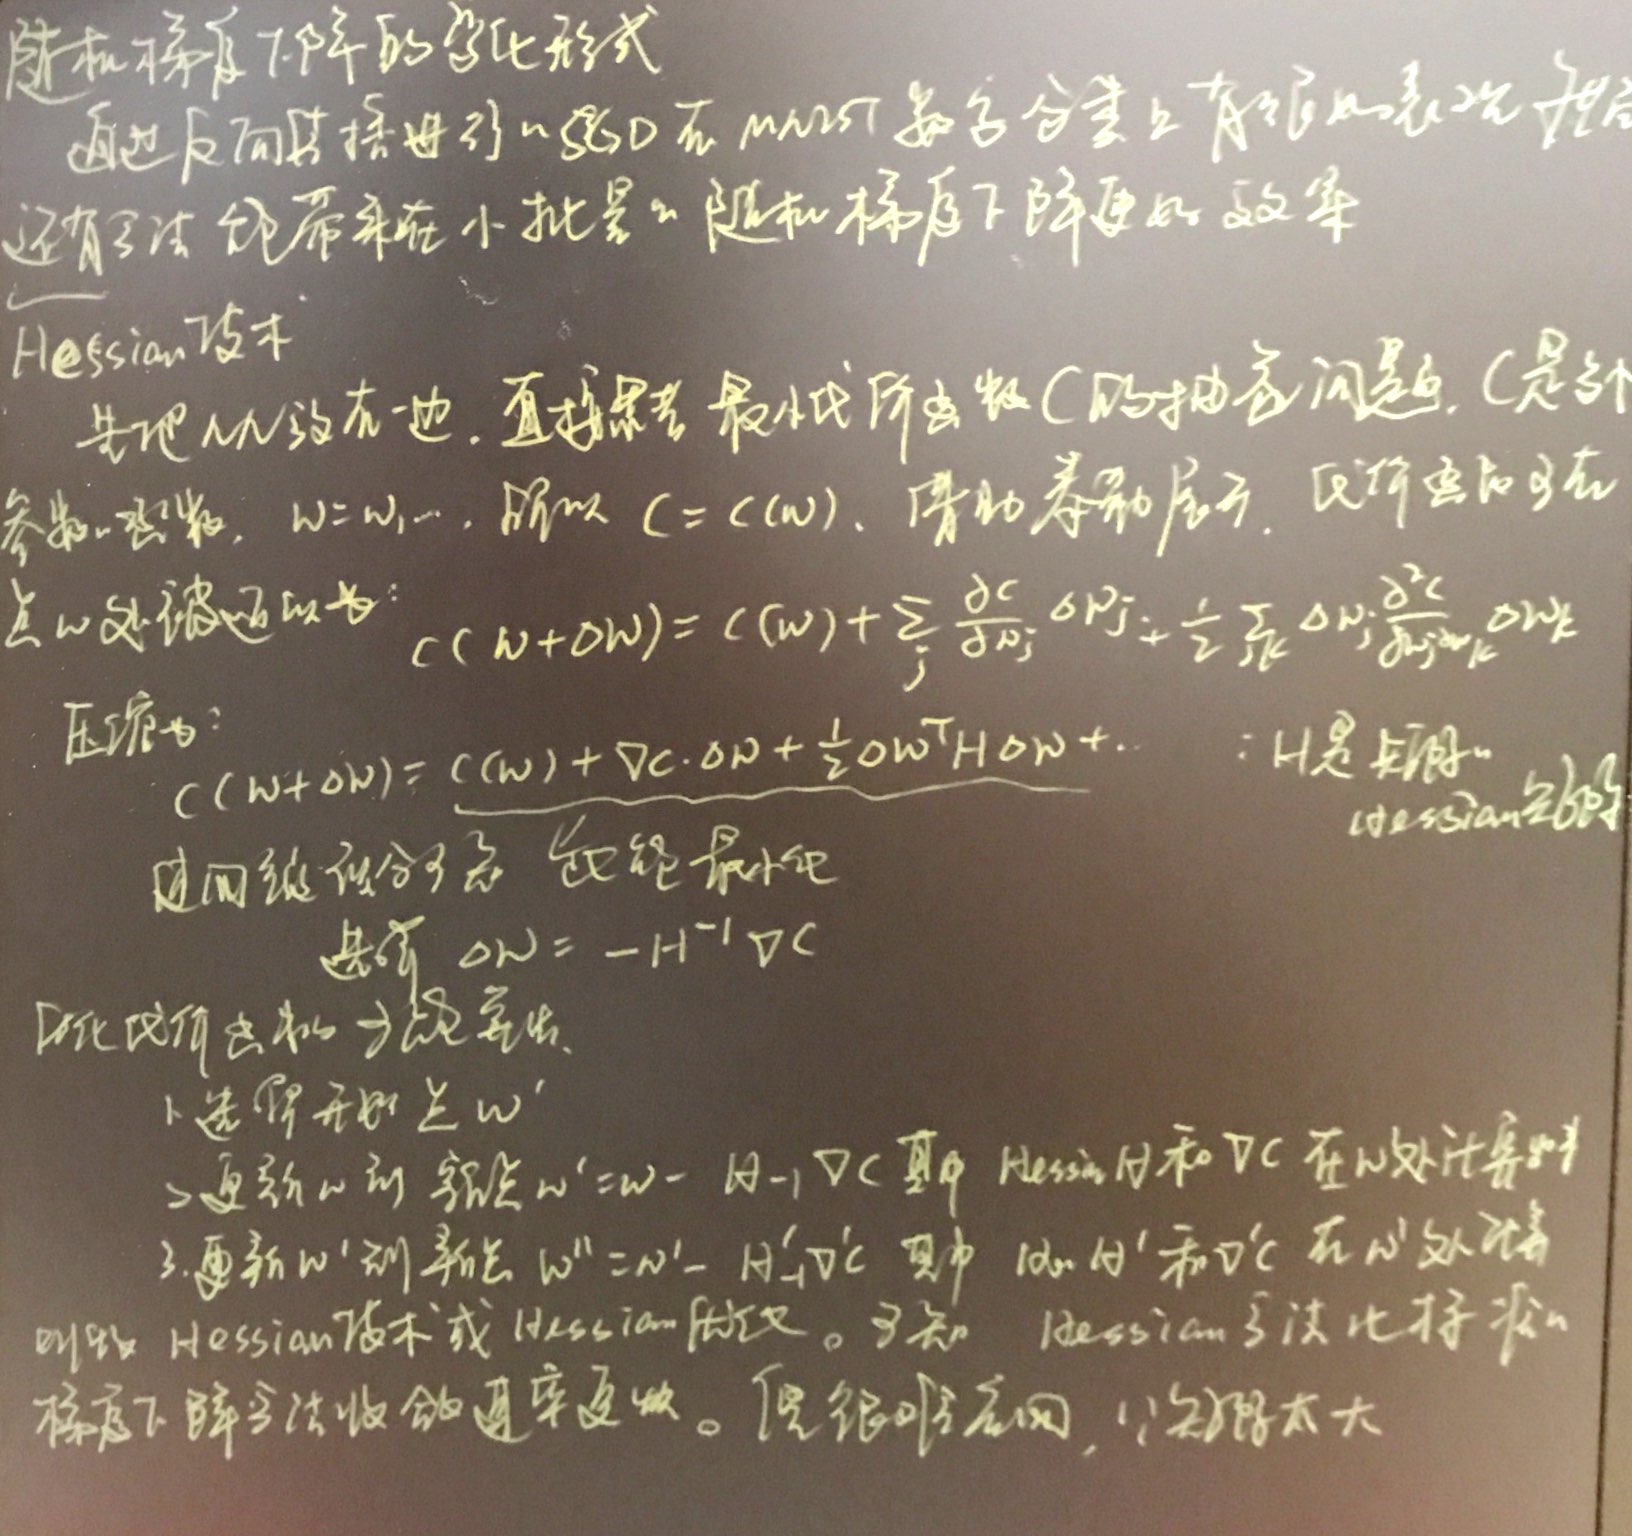 随机梯度下降的变化形式
通过反向传播进行的SGD在MNIST数字分类上有很好的表现 然后
还有方法能带来在小批量的随机梯度下降更好的效果
Hessian技术
先把NN放在一边. 直接思考最小化代价函数C的抽象问题. C是多个
参数的函数, w=w,…, 所以 C=C(w). 借助泰勒展示. 代价函数可在
点w处被近似为:
C(w+Δw)=C(w)+∑j ∂C/∂wj Δwj+1/2 ∑jk Δwj ∂²C/∂wj∂wk Δwk
压缩为:
C(w+Δw)=C(w)+∇C·Δw+1/2 Δw^T H Δw+.. :H是
Hessian矩阵
最小化
选择 Δw=-H^-1 ∇C
优化代价函数的方法算法.
1.选择开始点w'
2.更新w到新点w'=w- H-1∇C 其中 Hessian H和∇C 在w处计算
3.更新w'到新点 w''=w'- H'-1∇'C 其中 H'和∇'C 在w'处计算
叫做 Hessian技术或Hessian优化。可知 Hessian方法比标准的
梯度下降方法收敛速率更快。但很难应用, 1)矩阵太大